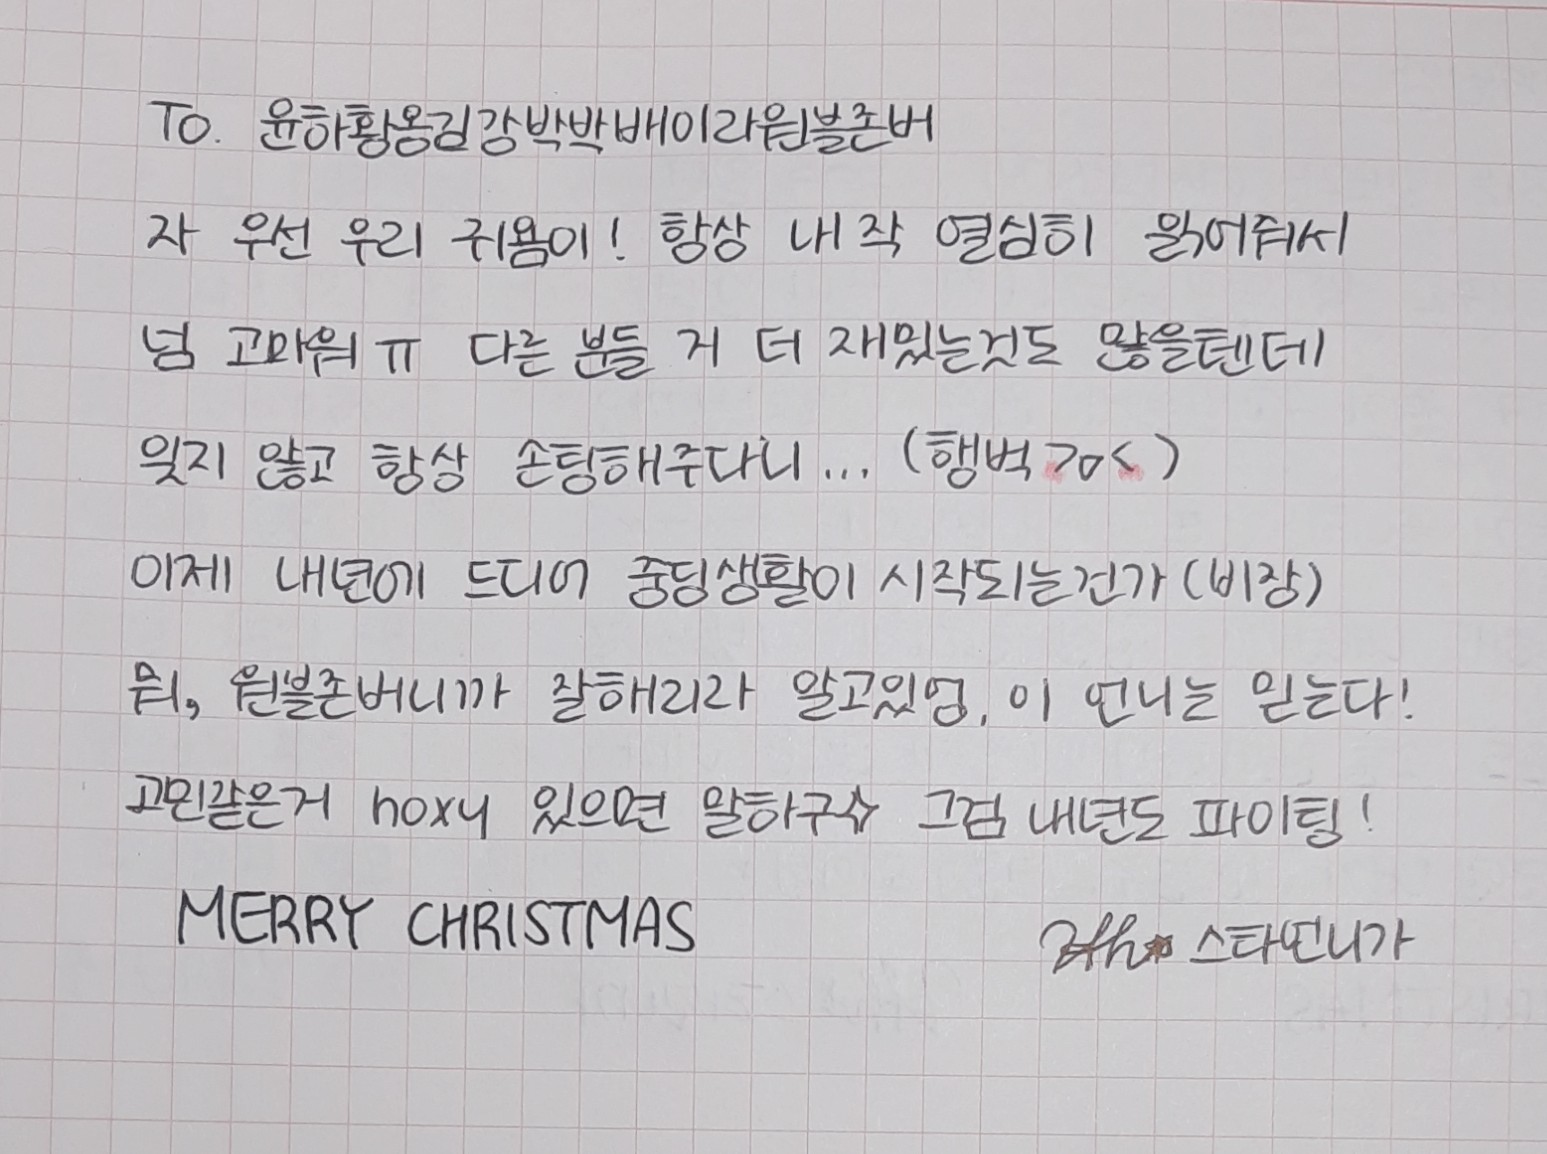 To. 윤하황옹김강박박배이라원블존버
자 우선 우리 귀욤이! 항상 내 작 열심히 읽어줘서
넘 고마워ㅠ 다른 분들 거 더 재밌는것도 많을텐데
잊지 않고 항상 손팅해주다니... (행벅>o<)
이제 내년에 드디어 중딩생활이 시작되는건가(비장)
뭐, 원블존버니까 잘해리라 알고있엉, 이 언니는 믿는다!
고민같은거 hoxy 있으면 말하구☆ 그럼 내년도 파이팅!
MERRY CHRISTMAS
스타언니가